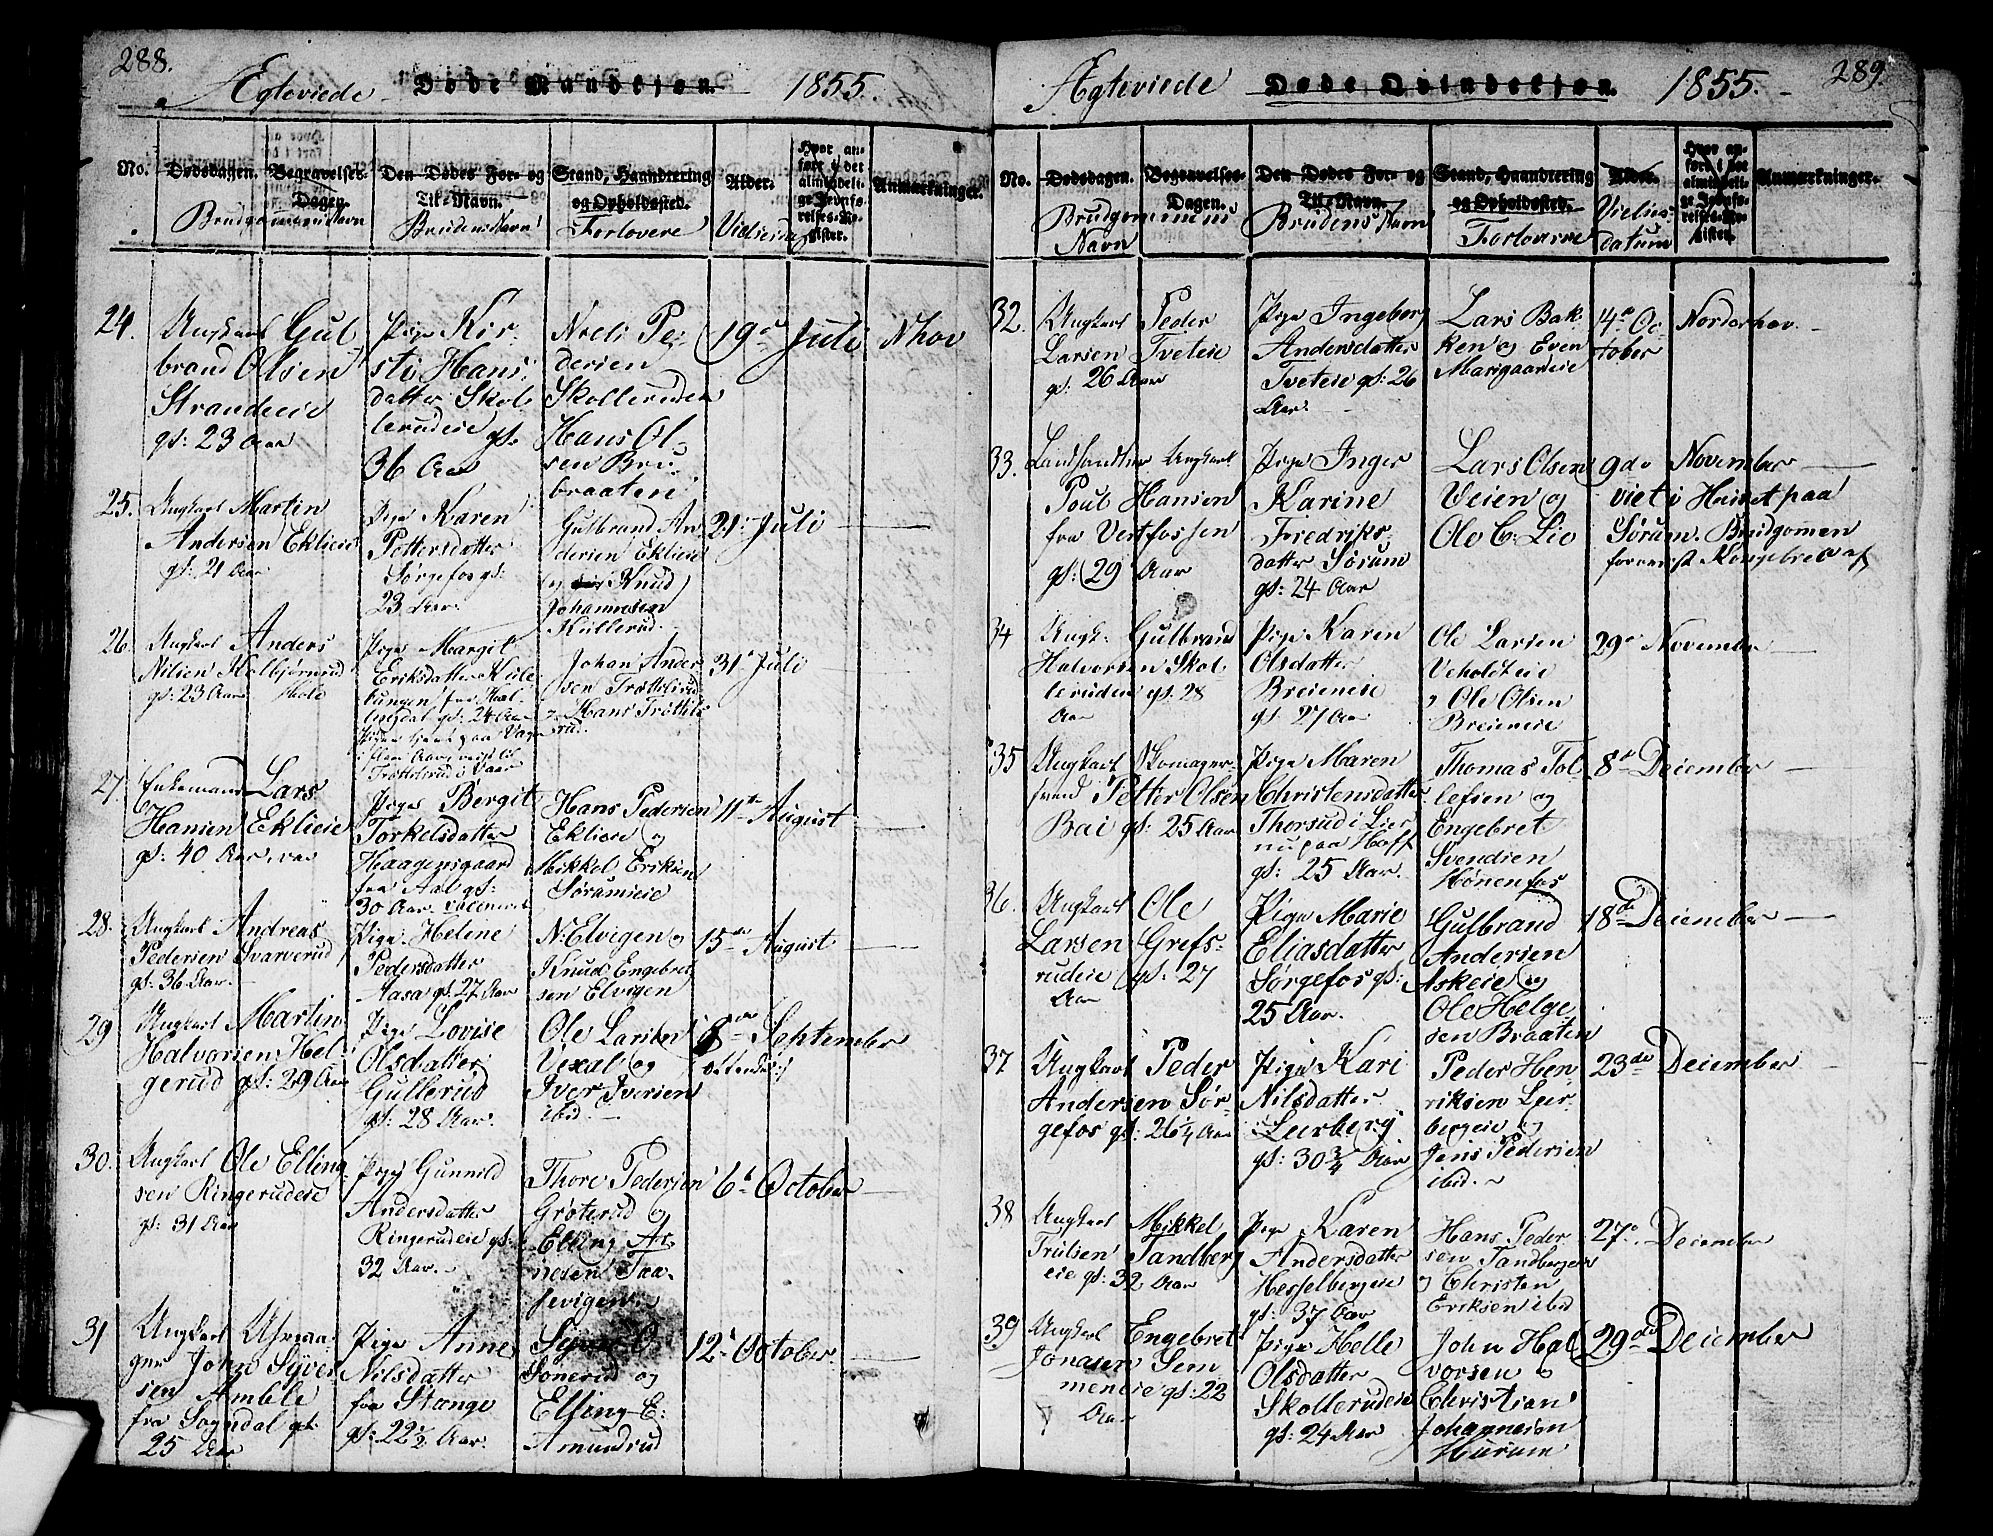 288.
Ægteviede Døde Mandkjøn. 1855.
No. Dødsdagen. Begravelses-Dagen. Den Dødes For- og Til-Navn. Stand, Haandtering og Opholdssted. Alder. Hvor anført i det almindelige Jevnførelses-Register. Anmærkninger.
Brudgommens Navn Brudens Navn Forlovere Vielses
24. Ungkarl Gul
brand Olsen
Strandeie
gl: 23 Aar
Pige Kir
sti Hans
datter Skol
lerudeie gl:
36 Aar
Niels Pe
dersen
Skollerudeie
Hans Ol
sen
braateri
19de Juli Nhov
25. Ungkarl Martin
Andersen Eklieie
gl: 21 Aar
Pige Karen
Pettersdatter
Sørgefos gl:
23 Aar.
Gulbrand An
dersen Eklieie
og Knud
Johannesen
Hullerud.
21. Juli
26. Ungkarl Anders
Nilsen
gl: 23 Aar
Pige Margit
Eriksdatter
fra Hal
lingdal gl: 24 Aar
Johan Ander
sen Trøttlsrud
og Hans Trøttls
rud.
31. Juli
27. Enkemand Lars
Hansen Eklieie
gl: 40 Aar, var
Pige Bergit
Torkelsdatter
Haagensgaard
fra Aal gl:
30 Aar.
Hans Pedersen
Eklieie og
Mikkel Eriksen
Sørumeie
11te August
28. Ungkarl Andreas
Pedersen Svarverud
gl: 36 Aar.
Pige Helene
Pedersdatter
Aasa gl: 27 Aar
N: Elvigen og
Knud Engebret
sen Elvigen
15de August
29 Ungkarl Martin
Halvorsen Hel
gerud gl: 29 Aar
Pige Lovise
Olsdatter
Gullerud
gl: 28 Aar.
Ole Larsen
Vexal og
Iver Iversen
ibid.
8de September
30. Ungkarl Ole Elling
sen Ringerudeie
gl: 31 Aar
Pige Gunnild
Andersdatter
Ringerudeie gl:
32 Aar.
Thore Pedersen
Grøterud og
Elling Ar
nesen Taa
jevigen
6te October
31 Ungkarl Uhrma
ger John Syver
sen Amble
fra Sogndal gl:
25 Aar
Pige Anne
Nilsdatter
fra Stange
gl: 22½ Aar.
Syver O.
Sonerud og
Elling E:
Amundrud
12te October.
289.
Ægteviede Døde Qvindekjøn. 1855.
No. Dødsdagen. Begravelses-Dagen. Den Dødes For- og Til-Navn. Stand, Haandtering og Opholdssted. Alder. Hvor anført i det almindelige Jevnførelses-Register. Anmærkninger.
Brudgommens Navn Brudens Navn Forlovere Vielsesdatum
32. Ungkarl Peder
Larsen Tveteie
gl: 26 Aar
Pige Ingeborg
Andersdatter
Tveteie gl: 26
Aar.
Lars Bak
ken og Even
Marigaardeie
4de Oc
tober
Norderhov
33. Landhandler Ungkarl
Poul Hansen
fra Vestfossen
gl: 29 Aar
Pige Inger
Karine
Fredriks
datter Sørum
gl: 24 Aar
Lars Olsen
Veien og
Ole C. Lie
9de November
viet i Huset paa
Sørum. Brudgomen
foreviist Kongebrev af
34 Ungk: Gulbrand
Halvorsen Skol
lerudeie gl: 28
Aar
Pige Karen
Olsdatter
Breieneie
gl: 27 Aar
Ole Larsen
Veholdteie
og Ole Olsen
Breieneie
29de November
35 Ungkarl Skomager
svend Petter Olsen
Bai gl: 25 Aar
Pige Maren
Christensdatter
Thorsrud i Lier
nu paa Hoff
gl: 25 Aar.
Thomas Tol
lefsen og
Engebret
Svendsen
Hønenfos
8de December
36. Ungkarl Ole
Larsen Grefs
rudeie gl: 27
Aar
Pige Marie
Eliasdatter
Sørgefos gl:
25 Aar.
Gulbrand
Andersen
Askeie og
Ole Helge
sen Braaten
18de December
37 Ungkarl Peder
Andersen Sør
gefos gl: 26¼ Aar
Pige Kari
Nilsdatter
Leerberg
gl: 30¾ Aar
Peder Hen
riksen Leer
bergeie og
Jens Pedersen
ibid.
23de December
38 Ungkarl Mikkel
Trulsen Tandberg
eie gl: 32 Aar
Pige Karen
Andersdatter
Hesselbergeie
gl: 37 Aar
Hans Peder
sen Tandbergeie
og Christen
Eriksen ibid
27de December
39 Ungkarl Engebret
Jonasen Sem
meneie gl: 22
Aar
Pige Helle
Olsdatter
Skollerudeie
gl: 24 Aar
John Hal
vorsen og
Christian
Johannesen
Hurum
29de December